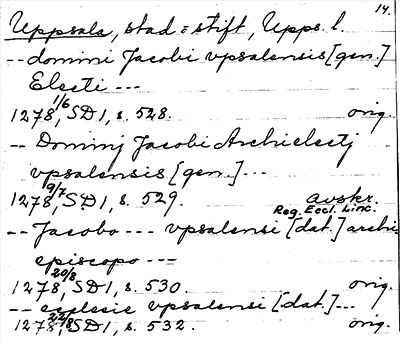 14.
Uppsala, stad = stift, Upps. l.
-- domini Jacobi vpsalensis [gen.]
Electi ---
1278 1/6, SD 1, s. 528. orig.
-- Dominj Jacobi Archielectj
vpsalensis [gen.] ---
1278 9/7, SD 1, s. 529. avskr.
Reg. Eccl. Linc.
-- Jacobo --- vpsalensi [dat.] archi-
episcopo ---
1278 20/8, SD 1, s. 530. orig.
-- ecclesie vpsalensi [dat.] ---
1278 22/8, SD 1, s. 532. orig.